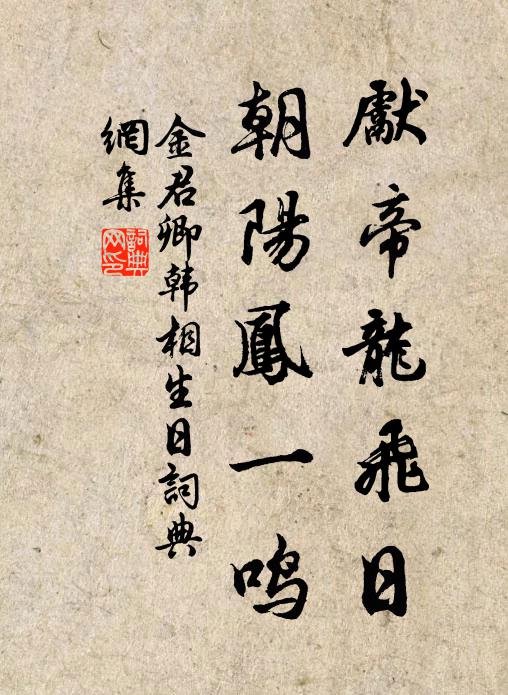 獻帝龍飛日
朝陽鳳一鸣
金君卿韩相生日詞典
網集
詞典網印